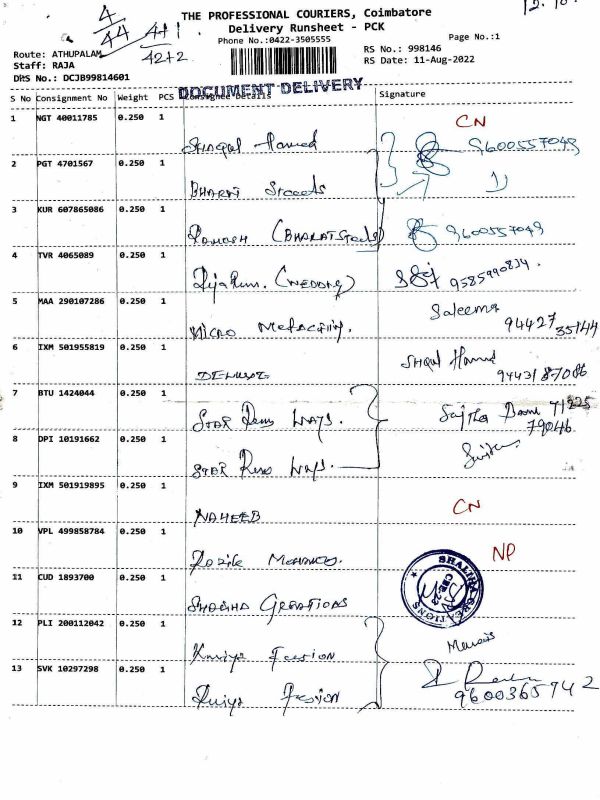 4/44
4+1
42+2
THE PROFESSIONAL COURIERS, Coimbatore
Delivery Runsheet - PCK
Phone No.:0422-3505555
Page No.:1
Route: ATHUPALAM
Staff: RAJA
DRS No.: DCJB99814601
RS No.: 998146
RS Date: 11-Aug-2022
DOCUMENT DELIVERY
S No Consignment No Weight PCS Consignee Details Signature
1 NGT 40011785 0.250 1 Hameed CN
9600557049
2 PGT 4701567 0.250 1 BHARAT Steeds
3 KUR 607865086 0.250 1 Ramesh (BHARAT Steeds) 9600557049
4 TVR 4065089 0.250 1 9585990834.
5 MAA 290107286 0.250 1 MICRO Saleema
94427 35144
6 IXM 501955819 0.250 1 DELUXE
94431 87086
7 BTU 1424044 0.250 1 STAR Ways. 71225
79046
8 DPI 10191662 0.250 1 STAR Ways.
9 IXM 501919895 0.250 1 NAHEEB CN
10 VPL 499858784 0.250 1 NP
11 CUD 1893700 0.250 1 CREATIONS
12 PLI 200112042 0.250 1
13 SVK 10297298 0.250 1 9600365742